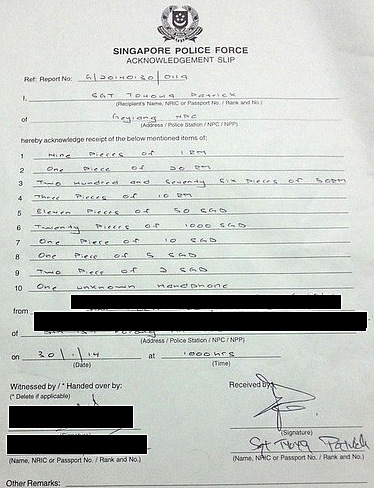 SINGAPORE POLICE FORCE
ACKNOWLEDGEMENT SLIP
Ref: Report No: G/20140130/0119
I, SGT Patrick
(Recipient's Name, NRIC or Passport No. / Rank and No.)
of Geylang NPC
(Address / Police Station / NPC / NPP)
hereby acknowledge receipt of the below mentioned items of:
1 Nine Pieces of 1 RM
2 One Piece of 20 RM
3 Two Hundred and Seventy Six Pieces of 50RM
4 Three Pieces of 10 RM
5 Eleven Pieces of 50 SGD
6 Twenty Pieces of 1000 SGD
7 One Piece of 10 SGD
8 One Piece of 5 SGD
9 Two Piece of 2 SGD
10 One unknown Handphone
from
of
(Address / Police Station / NPC / NPP)
on 30/1/14 at 1000hrs
(Date) (Time)
Witnessed by / * Handed over by: Received by:
(* Delete if applicable)
(Signature)
Sgt Patrick
(Name, NRIC or Passport No. / Rank and No.) (Name, NRIC or Passport No. / Rank and No.)
Other Remarks: